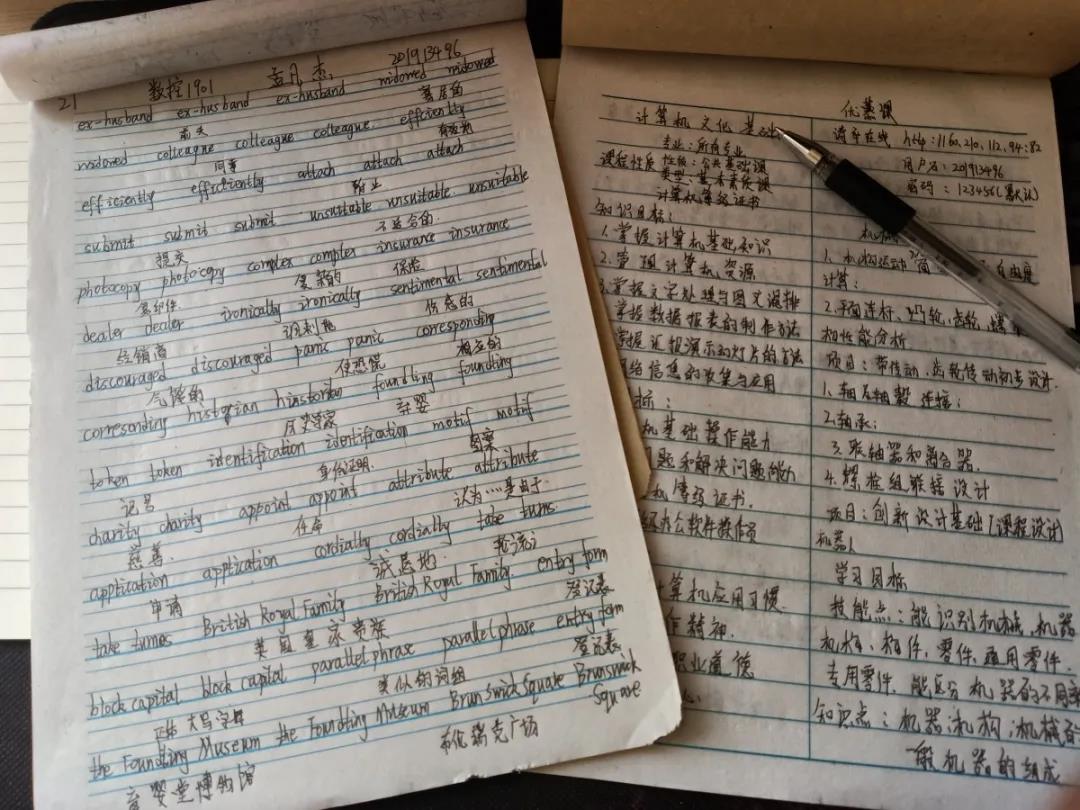 21 数控1901 孟凡杰 201913496
ex-husband ex-husband ex-husband widowed widowed
前夫 寡居的
widowed colleague colleague colleague. effciently
同事 有效地
efficiently efficiently attach attach attach
submit submit submit unsuitable unsuitable unsuitable
提交 不适合的.
photocopy photocopy complex complex insurance insurance
复印件 复杂的 保险
dealer dealer ironically ironically sentimental sentimental
经销商 讽刺地 伤感的
discouraged discouraged panic panic corresponding
气馁的 使恐慌 相应的
corresonding historian hinstorian foundling foundling
历史学家 弃婴
token token identification identification motif motif
记号 身份证明. 图案
charity charity appoint appoint attribute attribute
慈善. 任命 认为……是由于
application application cordially cordially take turns.
申请 诚恳地. 轮流;
take turnes British Royal Family British Royal Family. entry form
英国皇家贵族 登记表
block capital block capital parallel phrase parallel phrase entry form
正体大写字母 类似的词组 登记表
the Foundling Museum the Foundling Museum Brunswick Square Brunswick
Square
育婴堂博物馆 布伦瑞克广场
优慕课
计算机文化基础
专业:所有专业
课程性质 性质:公共基础课
类型:基本素质课
计算机等级证书
知识目标:
1.掌握计算机基础知识
2.管理计算机资源
3.掌握文字处理与图文混排
掌握数据报表的制作方法
掌握汇报演示幻灯片的方法
网络信息的收集与应用
标:
机基础操作能力
问题和解决问题能力
机等级证书.
办公软件操作员
计算机应用习惯.
作精神.
职业道德
清华在线 http://160.210.112.94:82
用户名:201913496
密码:123456(默认)
1.机构运动简 自由度
计算:
2.平面连杆、凸轮、齿轮、螺
构性能分析
项目:带传动、齿轮传动初步设计.
1.轴与轴毂连接;
2.轴承;
3.联轴器和离合器.
4.螺栓组联接设计
项目:创新设计基础(课程设计)
机器人
学习目标
技能点:能识别机械、机器
机构、构件、零件、通用零件.
专用零件.能区分机器的不同
知识点:机器;机构;机械
般机器的组成